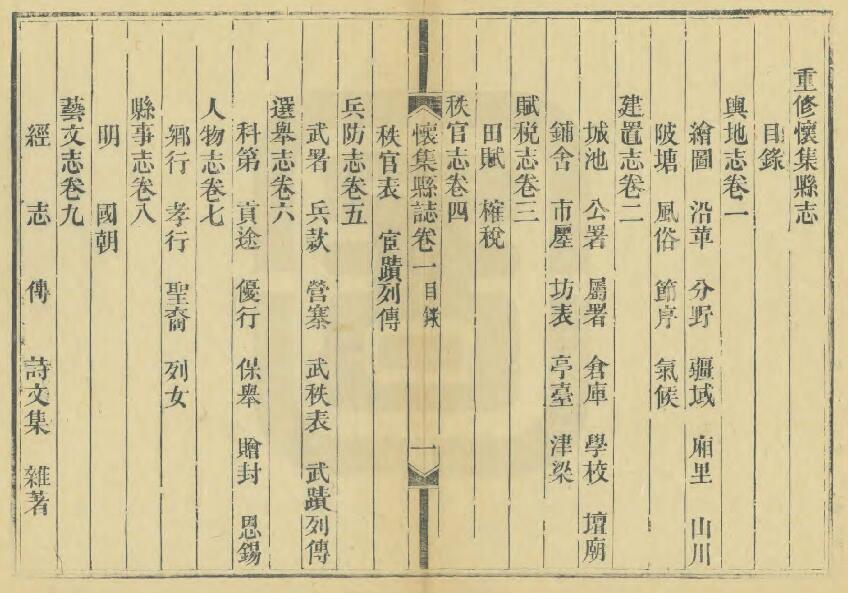 重修懷集縣志
目錄
輿地志卷一
繪圖 沿革 分野 疆域 廂里 山川
陂塘 風俗 節序 氣候
建置志卷二
城池 公署 屬署 倉庫 學校 壇廟
鋪舍 市廛 坊表 亭臺 津梁
賦稅志卷三
田賦 榷稅
秩官志卷四
懷集縣誌卷一目錄 一
秩官表 宦蹟列傳
兵防志卷五
武署 兵款 營寨 武秩表 武蹟列傳
選舉志卷六
科第 貢途 優行 保舉 贈封 恩錫
人物志卷七
鄉行 孝行 聖裔 列女
縣事志卷八
明 國朝
藝文志卷九
經 志 傳 詩文集 雜著